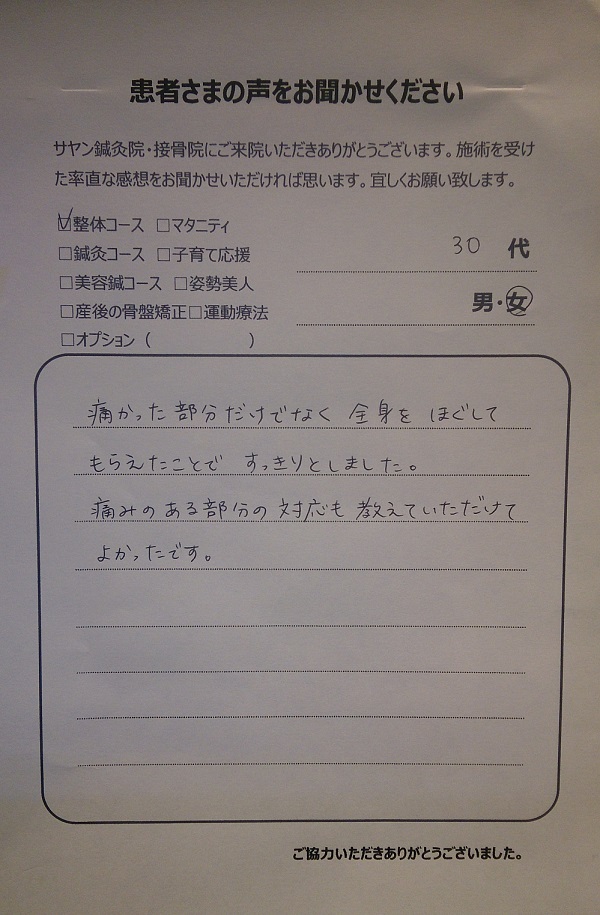 患者さまの声をお聞かせください
サヤン鍼灸院・接骨院にご来院いただきありがとうございます。施術を受け
た率直な感想をお聞かせいただければ思います。宜しくお願い致します。
☑整体コース □マタニティ
□鍼灸コース □子育て応援
30 代
□美容鍼コース □姿勢美人
男・女
□産後の骨盤矯正□運動療法
□オプション（ ）
痛かった部分だけでなく 全身を ほぐして
もらえたことで すっきりとしました。
痛みのある部分の 対応も 教えていただけて
よかったです。
ご協力いただきありがとうございました。